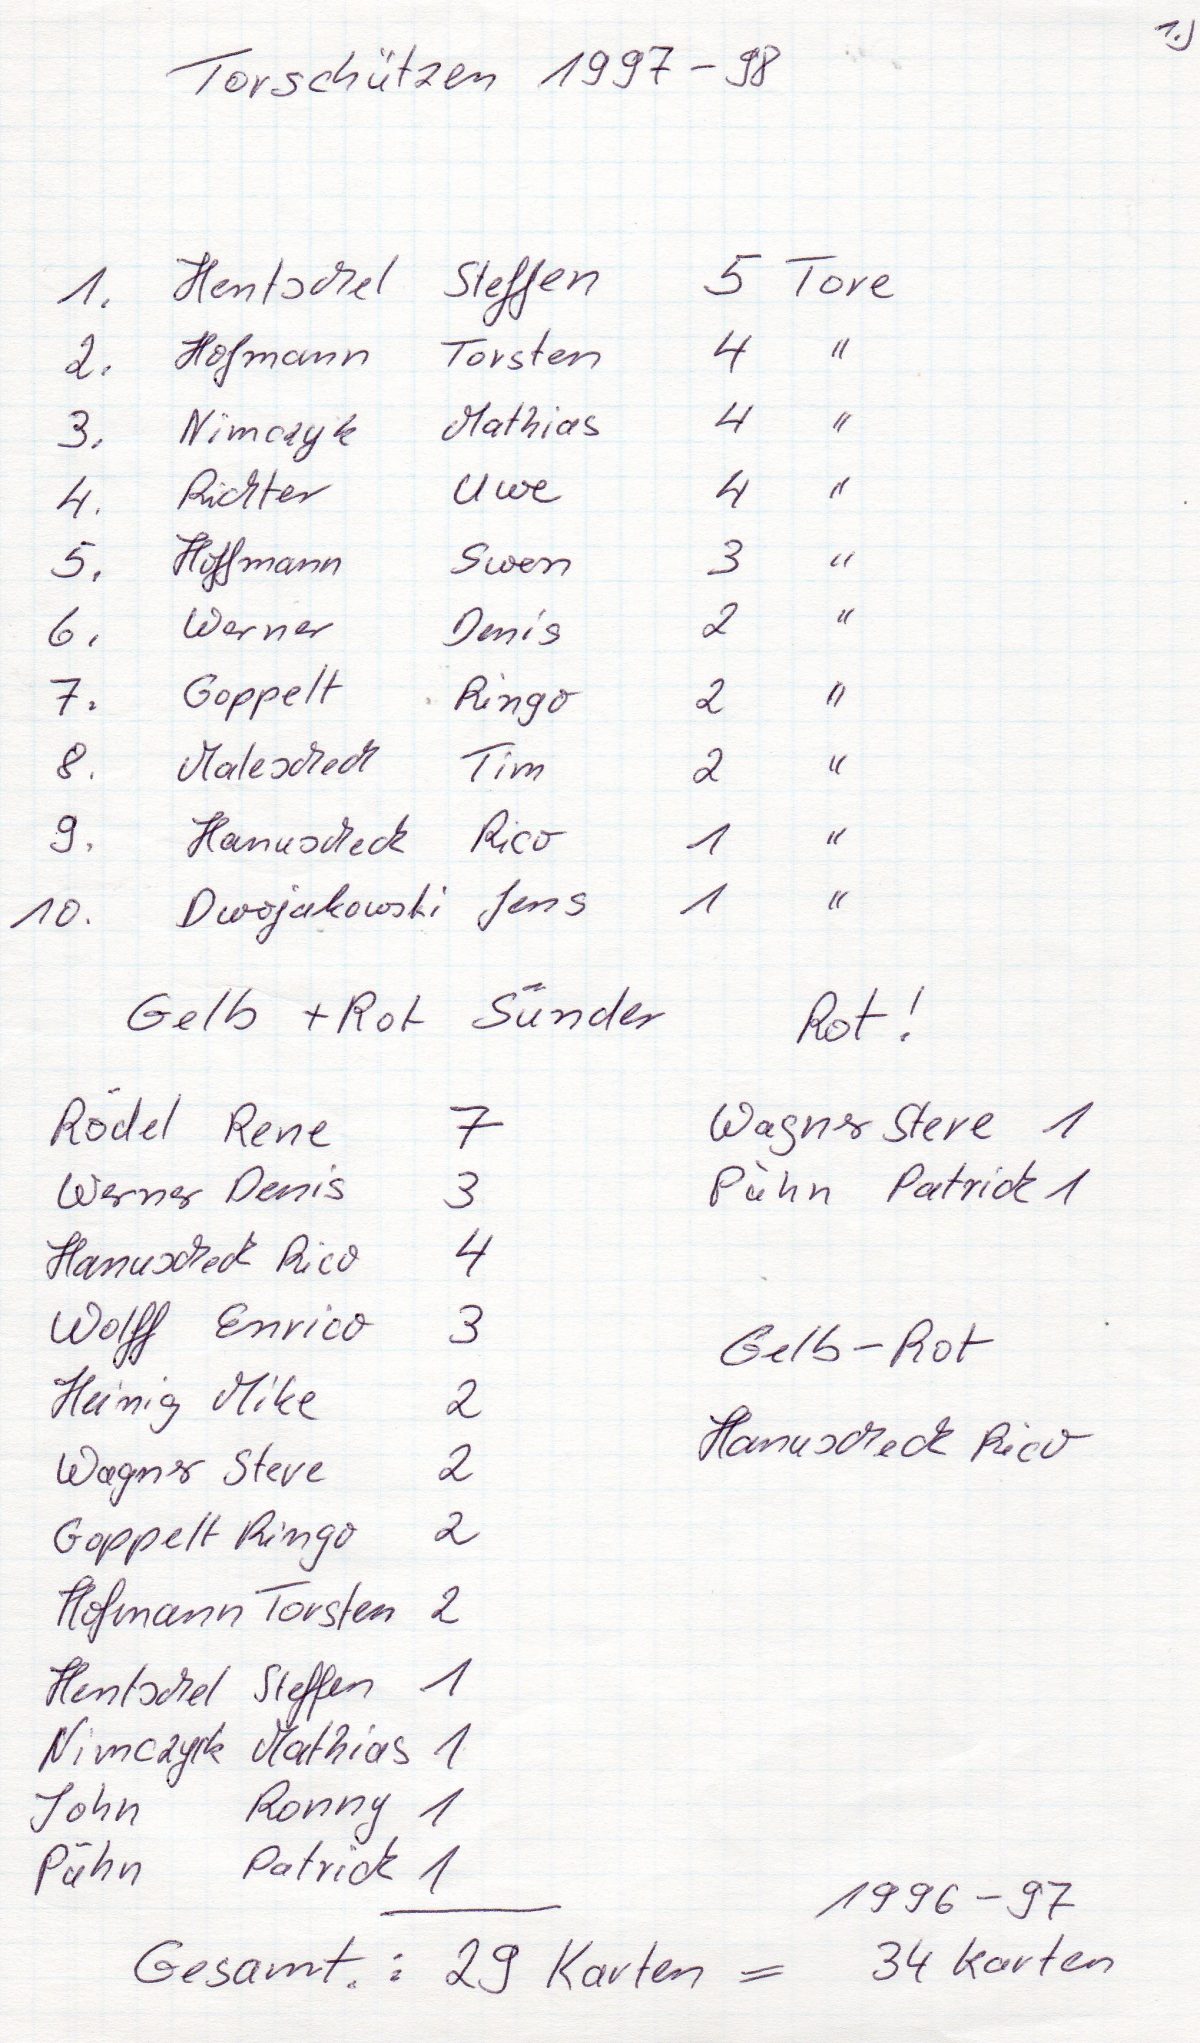 1.)
Torschützen 1997-98
1. Hentschel Steffen 5 Tore
2. Hofmann Torsten 4 "
3. Nimczyk Mathias 4 "
4. Richter Uwe 4 "
5. Hoffmann Swen 3 "
6. Werner Denis 2 "
7. Goppelt Ringo 2 "
8. Malescheck Tim 2 "
9. Hanuscheck Rico 1 "
10. Dwojakowski Jens 1 "
Gelb + Rot Sünder
Rödel Rene 7
Werner Denis 3
Hanuscheck Rico 4
Wolff Enrico 3
Heinig Mike 2
Wagner Steve 2
Goppelt Ringo 2
Hofmann Torsten 2
Hentschel Steffen 1
Nimczyk Mathias 1
John Ronny 1
Pühn Patrick 1
Rot!
Wagner Steve 1
Pühn Patrick 1
Gelb-Rot
Hanuscheck Rico
1996-97
Gesamt.: 29 Karten = 34 Karten